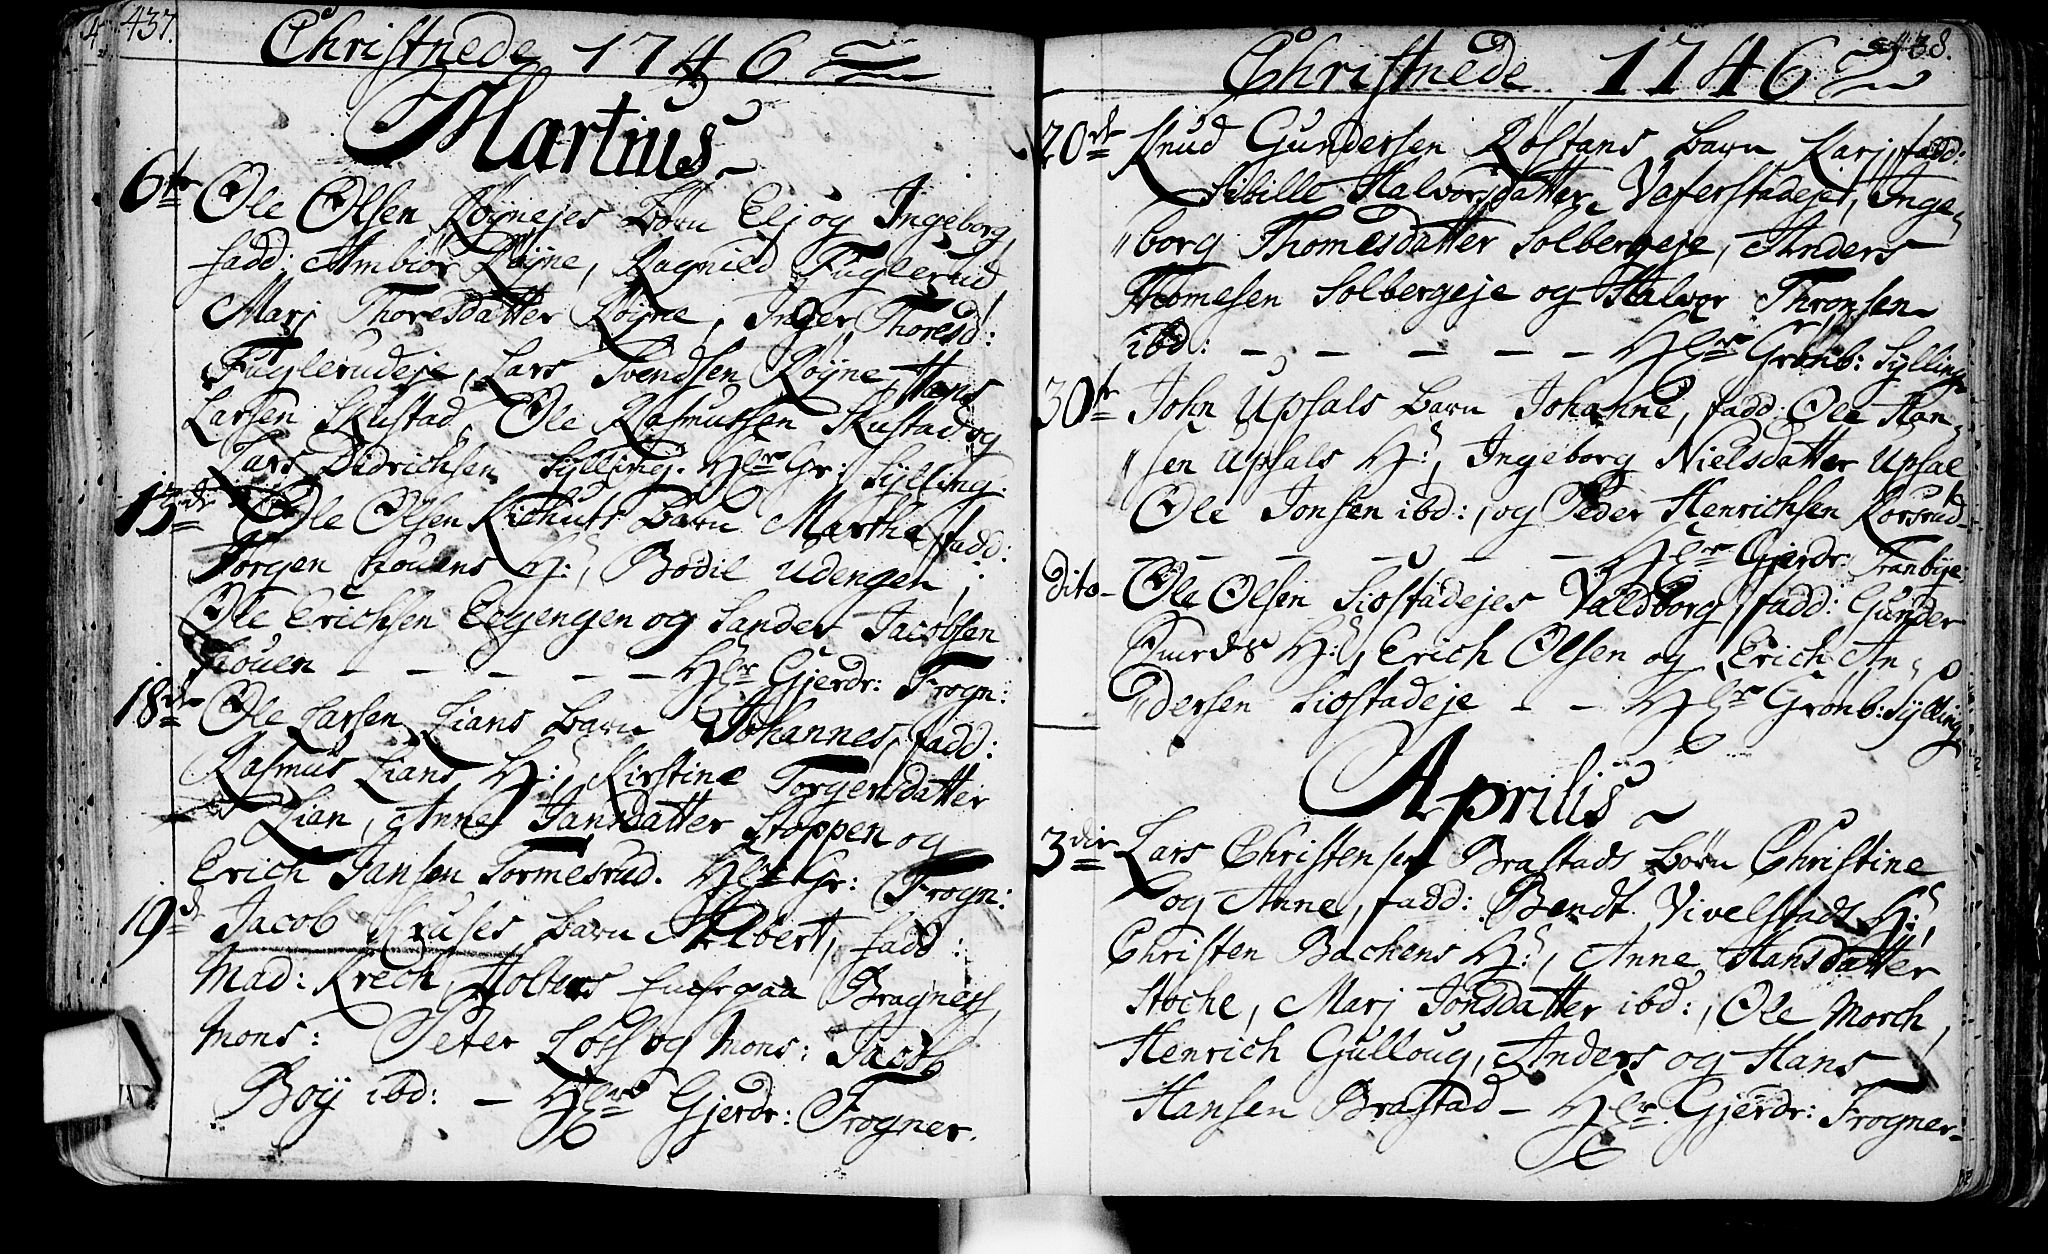 437.
Christnede 1746
Martius
6te Ole Olsen Røynejes Børn Elj og Ingeborg,
fadd: Ambiör Røyne, Ragnild Fuglerud,
Marj Thoresdatter Røyne, Inger Thoresd:
Fuglerudeje, Lars Svendsen Røyne, Hans
Larsen Skustad, Ole Rasmussen Skustad og
Lars Didrichsen Sylling. Hlr Gr: Sylling:
13de Ole Olsen Kiehuts Barn Martha, fadd:
Jörgen Houens H:, Bodil Udengen,
Ole Erichsen Eegengen og Sander Jacobsen
Houen - - - - - Hlr Gjerdr: Frogn:
18de Ole Larsen Lians Barn Johannes, fadd:
Rasmus Lians H:, Kirstine Torgersdatter
Lian, Anne Jansdatter Stoppen og
Erich Jansen Tormesrud. Hlr Gr: Frogn:
19d Jacob Kruses Barn Albert, fadd:
Mad: Krech, Bragness,
Mons: Peter og Mons: Jacob
Boy ibd: - Hlr Gjerdr: Frogner.
438.
Christnede 1746
20de Knud Gundersen Røstans Barn Karj, fadd:
Sibille Halvorsdatter Veferstadeje, Inge-
borg Thomesdatter Solbergeje, Anders
Thomesen Solbergeje og Halvor Thronsen
ibd: - - - - - Hlr Grønb: Sylling
30te John Upsals Barn Johanne, fadd: Ole Han-
sen Upsals H:, Ingeborg Nielsdatter Upsal
Ole Jonsen ibd:, og Peder Henrichsen Korsrud
- - - - - Hlr Gjerdr: Tranbye:
dito- Ole Olsen Siostadejes Valdborg, fadd: Gunder
H:, Erich Olsen og Erich An-
dersen Siostadeje - - Hlr Grønb: Sylling
Aprilis
3die Lars Christensen Brastads Børn Christine
og Anne, fadd: Bendt Vivelstads H:,
Christen Bachens H:, Anne Hansdatter
Stoche, Marj Jonsdatter ibd:, Ole Morch,
Henrich Gulloug, Anders og Hans
Hansen Brastad - Hlr Gjerdr: Frogner: